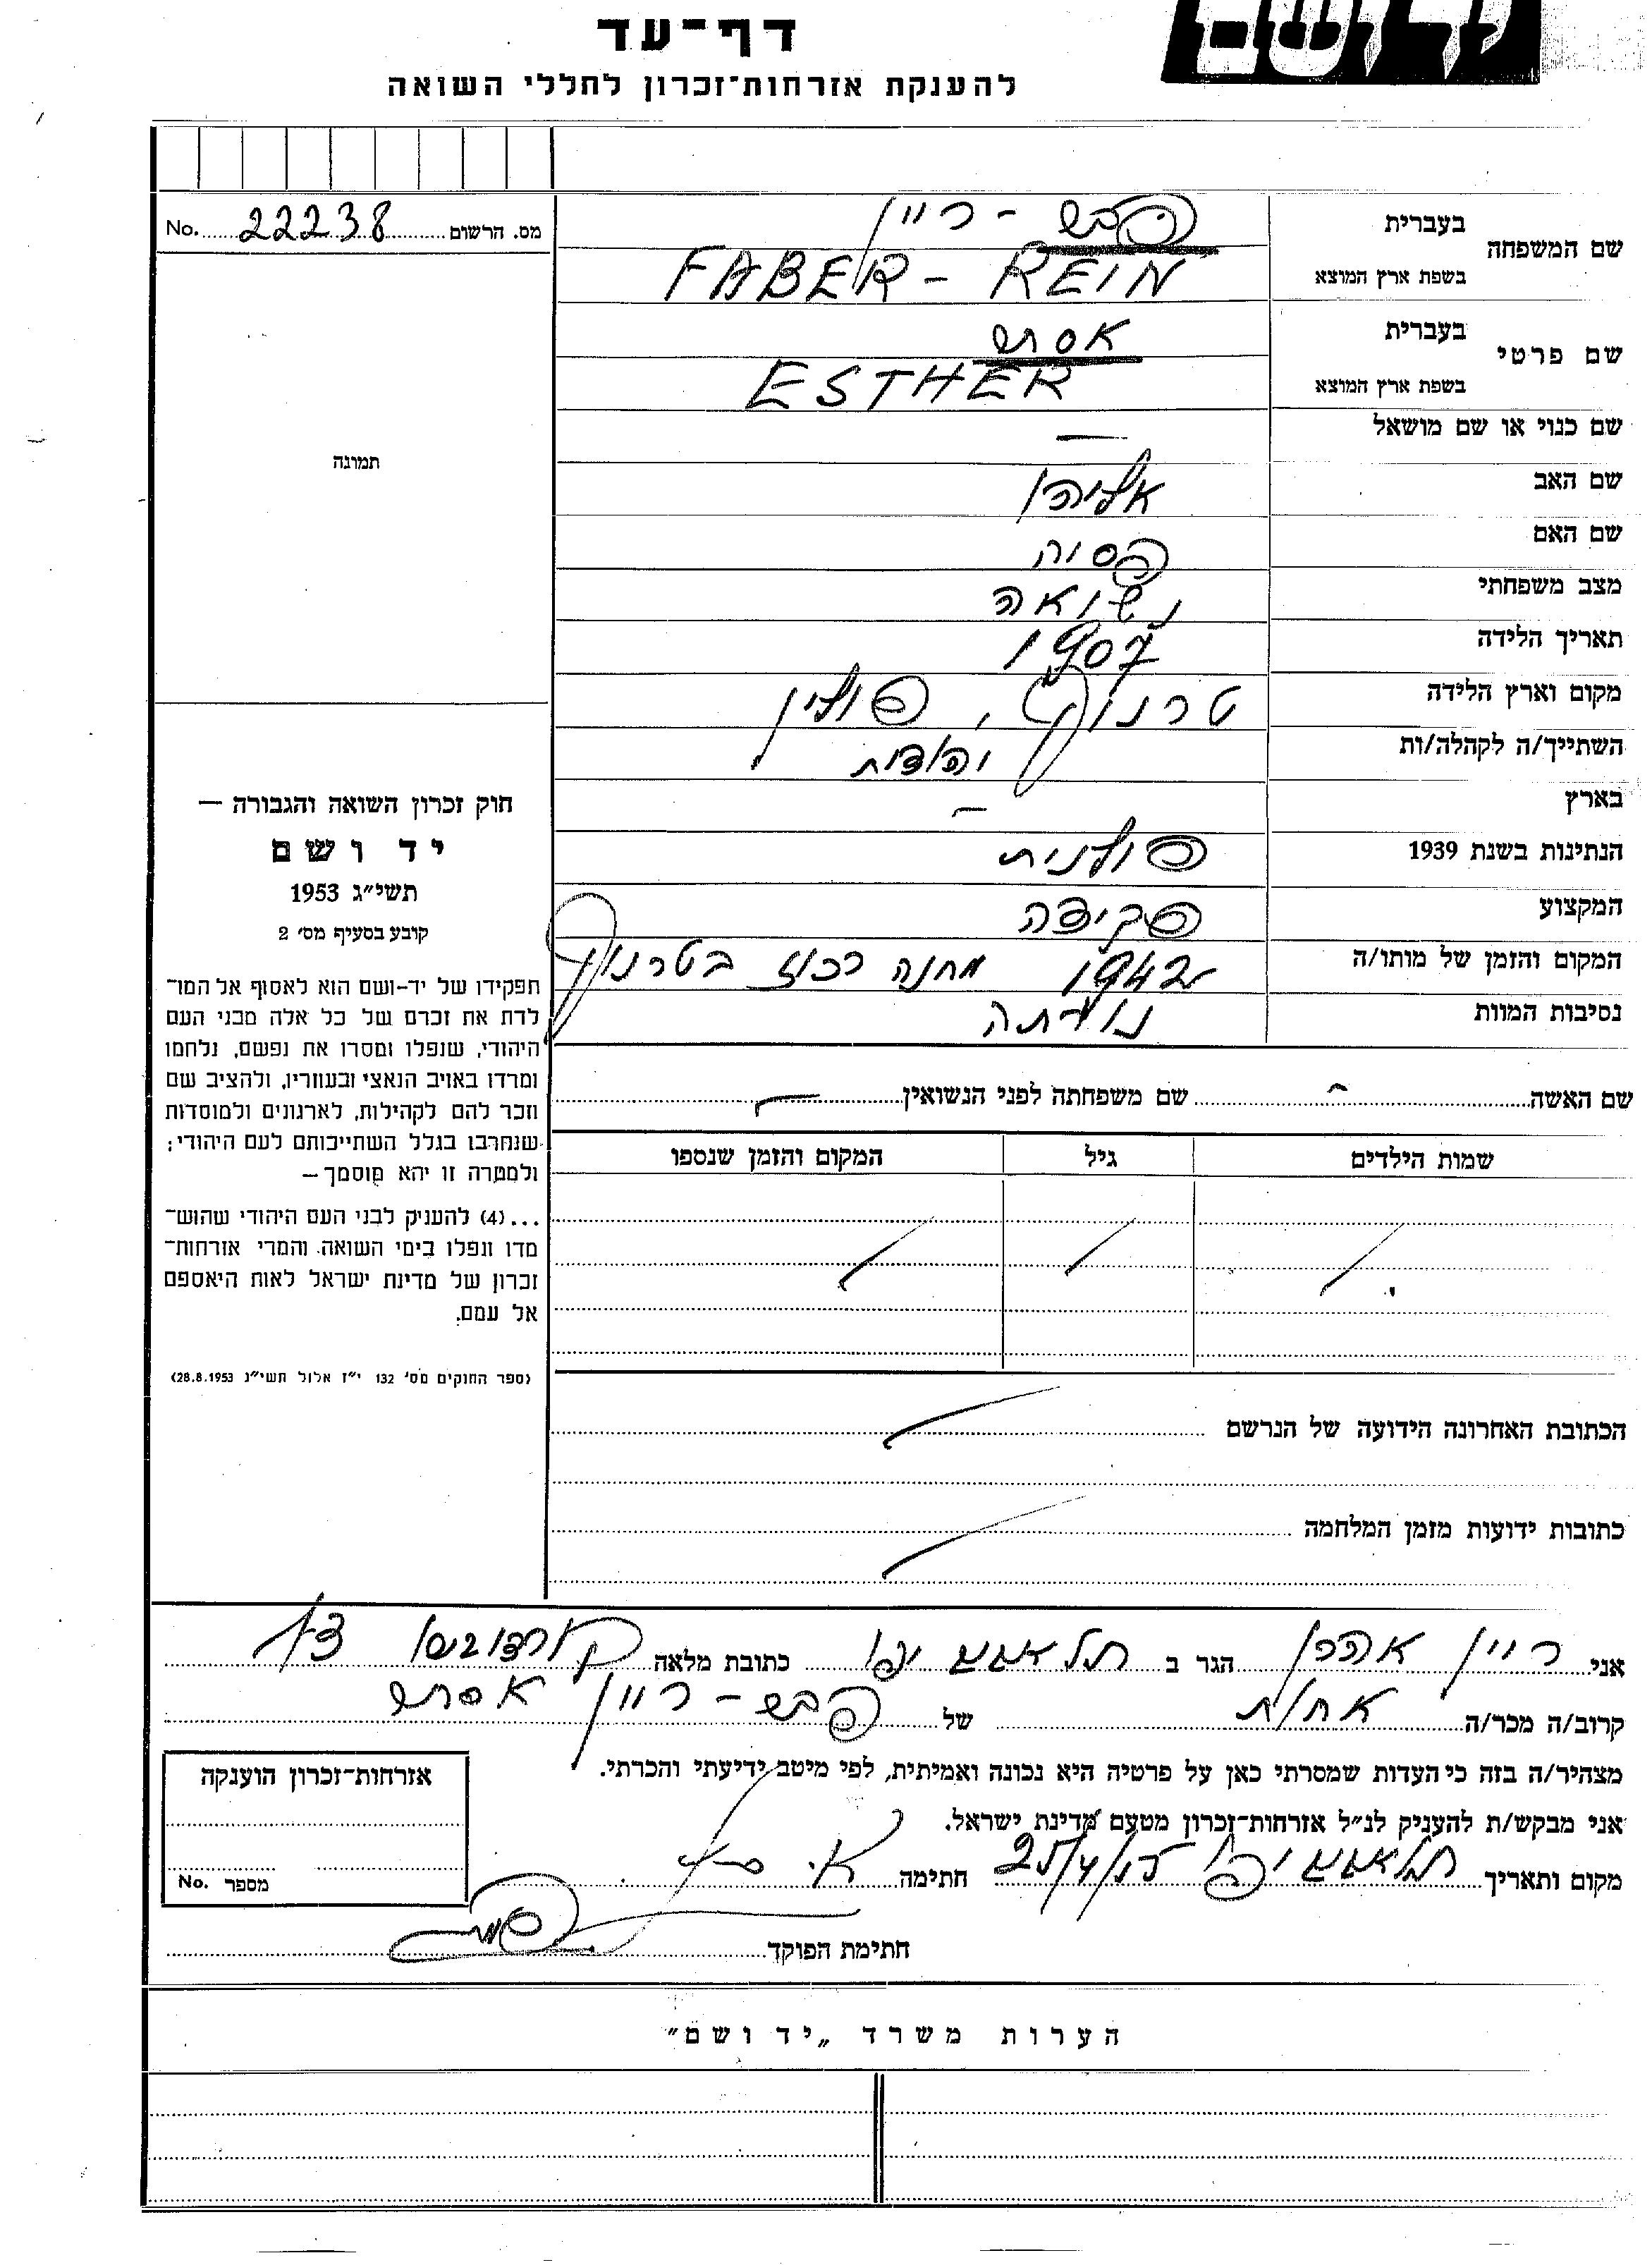 ושם
דף־עד
להענקת אזרחות־זכרון לחללי השואה
מס. הרשום 22238 No.
שם המשפחה
בעברית פבר - ריין
בשפת ארץ המוצא FABER - REIN
שם פרטי
בעברית אסתר
בשפת ארץ המוצא ESTHER
שם כנוי או שם מושאל —
שם האב אליהו
שם האם פסיה
מצב משפחתי נשואה
תאריך הלידה 1907
מקום וארץ הלידה טרנוף, פולין
השתייך/ה לקהלה/ות יהודית
בארץ —
הנתינות בשנת 1939 פולנית
המקצוע פקידה
המקום והזמן של מותו/ה 1942 מחנה רכוז בטרנוף
נסיבות המוות נורתה
תמונה
חוק זכרון השואה והגבורה —
יד ושם
תשי״ג 1953
קובע בסעיף מס׳ 2
תפקידו של יד-ושם הוא לאסוף אל המו־
לדת את זכרם של כל אלה מבני העם
היהודי, שנפלו ומסרו את נפשם, נלחמו
ומרדו באויב הנאצי ובעוזריו, ולהציב שם
וזכר להם לקהילות, לארגונים ולמוסדות
שנחרבו בגלל השתייכותם לעם היהודי;
ולמטרה זו יהא מוסמך —
...(4) להעניק לבני העם היהודי שהוש־
מדו ונפלו בימי השואה והמרי אזרחות־
זכרון של מדינת ישראל לאות היאספם
אל עמם.
(ספר החוקים מס׳ 132 י״ז אלול תשי״ג 28.8.1953)
שם האשה — שם משפחתה לפני הנשואין —
שמות הילדים גיל המקום והזמן שנספו
הכתובת האחרונה הידועה של הנרשם
כתובות ידועות מזמן המלחמה
אני ריין אהרן הגר ב תל אביב יפו כתובת מלאה
קרוב/ה מכר/ה אחות של פבר - ריין אסתר
מצהיר/ה בזה כי העדות שמסרתי כאן על פרטיה היא נכונה ואמיתית, לפי מיטב ידיעתי והכרתי.
אני מבקש/ת להעניק לנ״ל אזרחות־זכרון מטעם מדינת ישראל.
מקום ותאריך תל אביב יפו חתימה
חתימת הפוקד
אזרחות־זכרון הוענקה
מספר No.
הערות משרד „יד ושם״